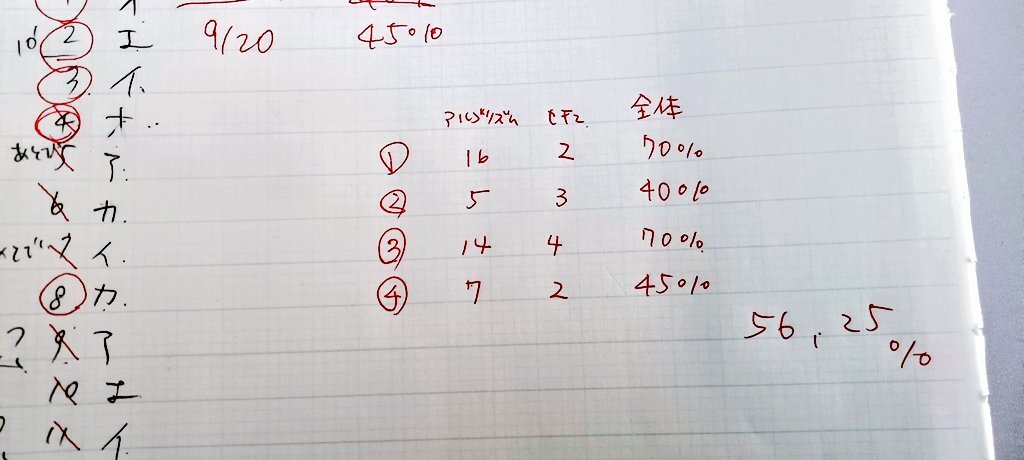 1 イ
10' 2 エ 9/20 45%
3 イ.
4 オ..
5 ア.
6 カ.
7 イ.
8 カ.
9 ア
10 エ
11 イ
アルゴリズム セキュ 全体
① 16 2 70%
② 5 3 40%
③ 14 4 70%
④ 7 2 45%
56,25%